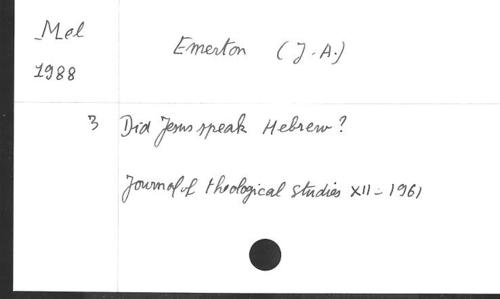 Mel
1988
Emerton (J.A.)
3 Did Jesus speak Hebrew?
Journal of theological studies XII - 1961